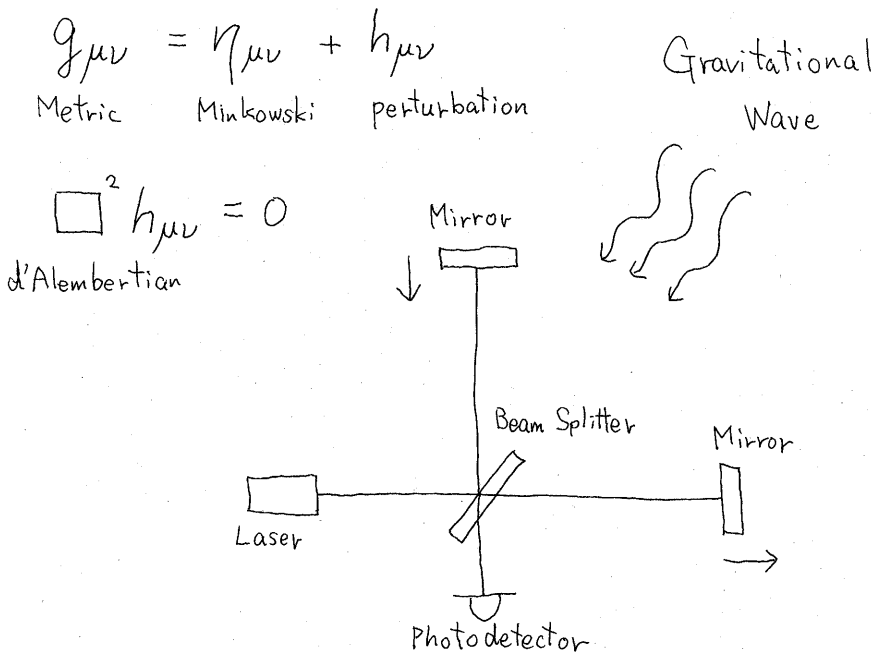 g_μν = η_μν + h_μν
Metric Minkowski perturbation
Gravitational
Wave
□² h_μν = 0
d'Alembertian
Mirror
Beam Splitter
Mirror
Laser
Photodetector